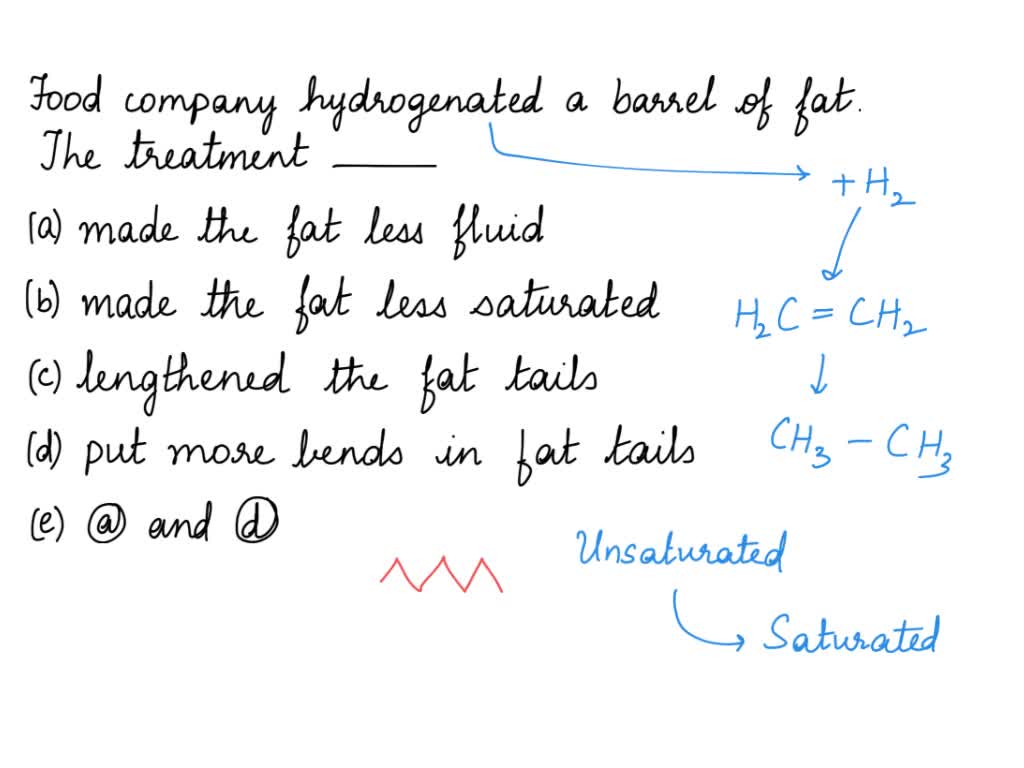 Food company hydrogenated a barrel of fat.
The treatment ______
+ H2
(a) made the fat less fluid
(b) made the fat less saturated
H2C = CH2
(c) lengthened the fat tails
(d) put more bends in fat tails
CH3 – CH3
(e) ⓐ and ⓓ
Unsaturated
Saturated